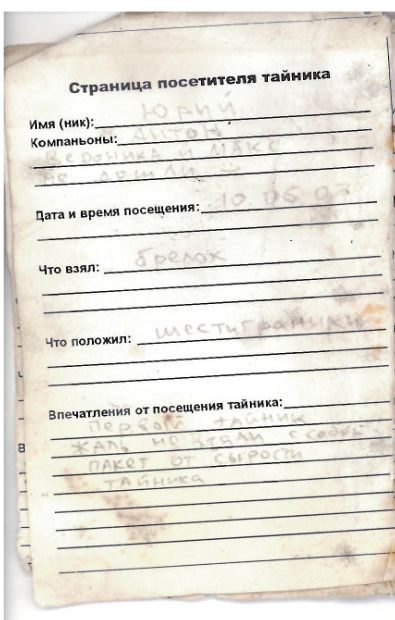 Страница посетителя тайника
Имя (ник): Юрий
Компаньоны: Антон
Вероника и Макс
не дошли
Дата и время посещения: 10.06.07
Что взял: брелок
Что положил: шестигранники
Впечатления от посещения тайника:
Первый тайник
жаль не взяли с собой
пакет от сырости
тайника